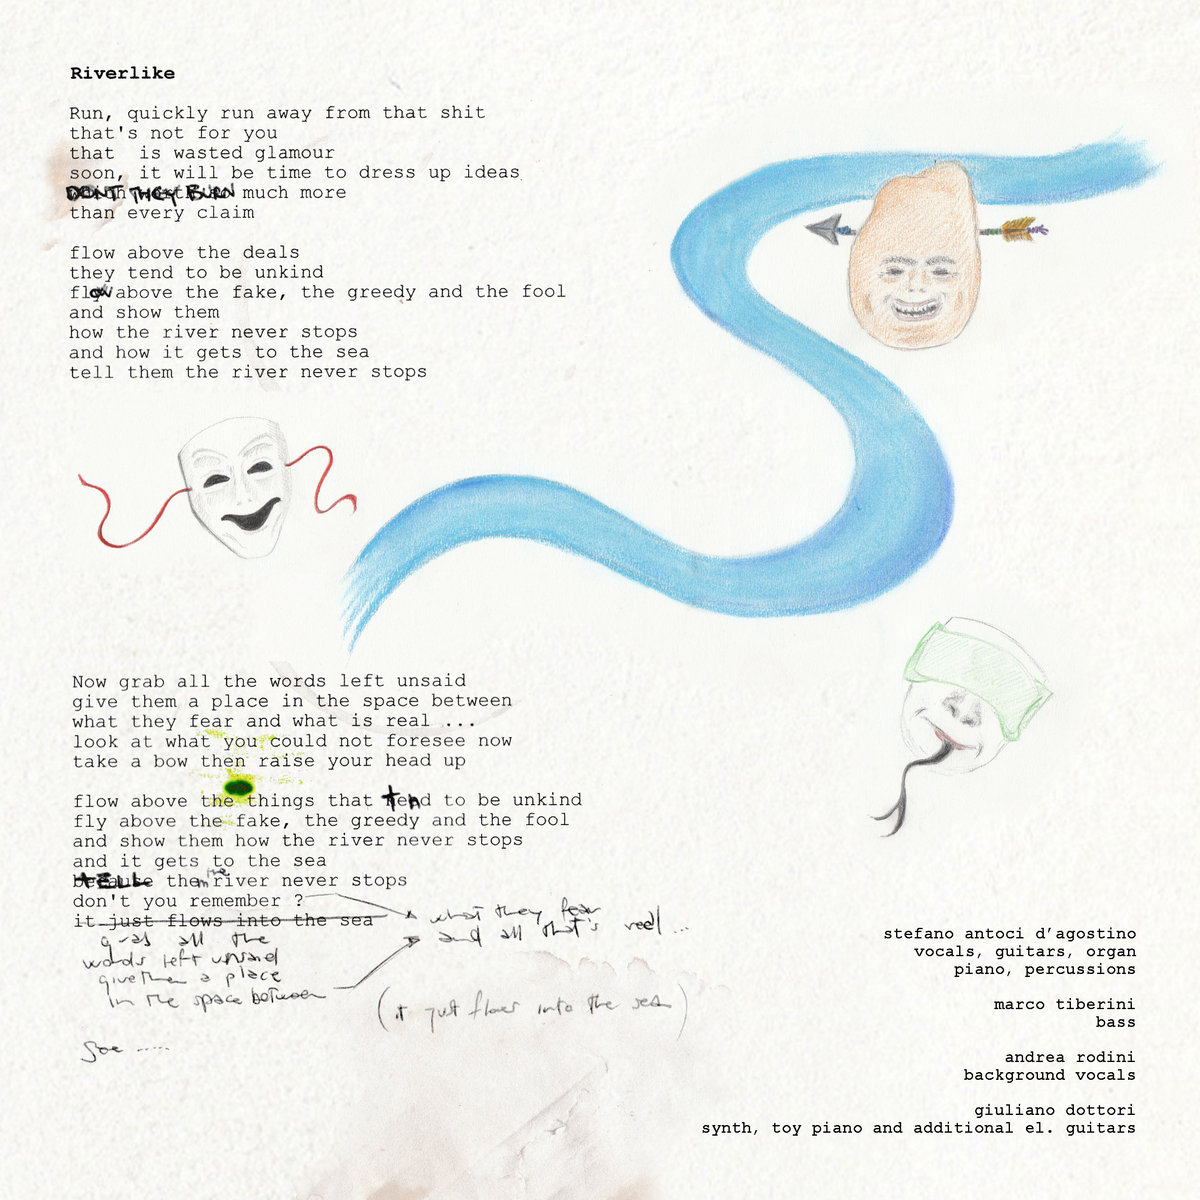 Riverlike
Run, quickly run away from that shit
that's not for you
that is wasted glamour
soon, it will be time to dress up ideas
DON'T THEY BURN much more
than every claim
flow above the deals
they tend to be unkind
flow above the fake, the greedy and the fool
and show them
how the river never stops
and how it gets to the sea
tell them the river never stops
Now grab all the words left unsaid
give them a place in the space between
what they fear and what is real ...
look at what you could not foresee now
take a bow then raise your head up
flow above the things that tend to be unkind
fly above the fake, the greedy and the fool
and show them how the river never stops
and it gets to the sea
TELL them the river never stops
don't you remember ?
it just flows into the sea
grab all the
words left unsaid
give them a place
in the space between
what they fear
and all that's real ...
(it just flows into the sea)
stefano antoci d'agostino
vocals, guitars, organ
piano, percussions
marco tiberini
bass
andrea rodini
background vocals
giuliano dottori
synth, toy piano and additional el. guitars